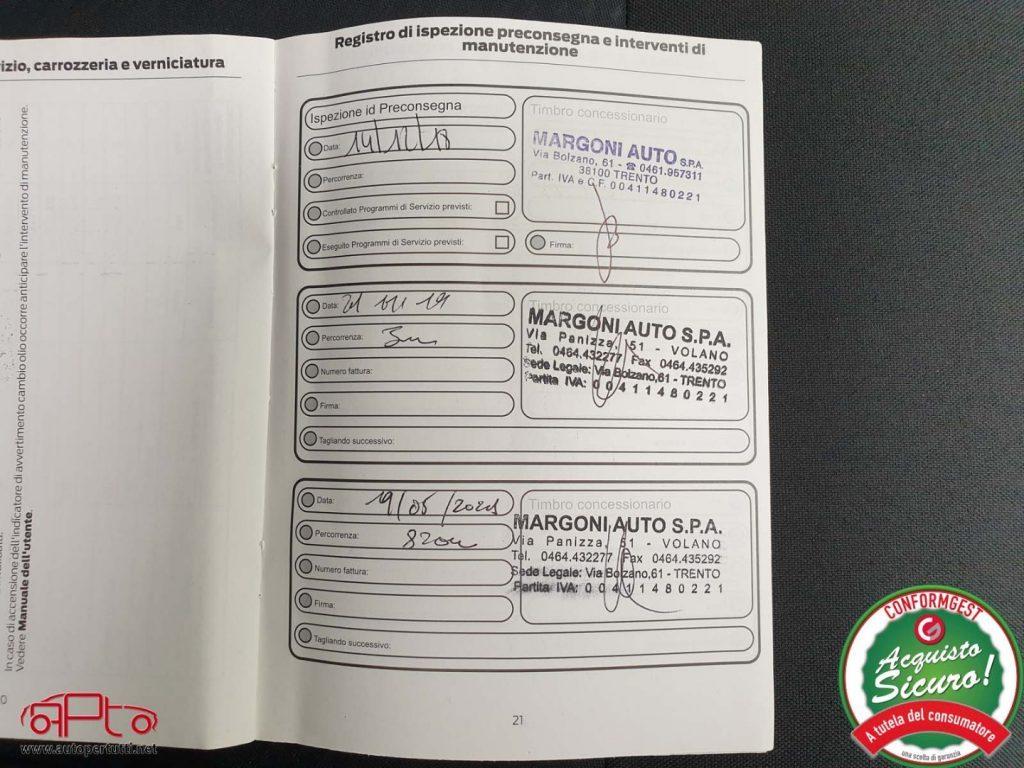 izio, carrozzeria e verniciatura
In caso di accensione dell'indicatore di avvertimento cambio olio occorre anticipare l'intervento di manutenzione.
Vedere Manuale dell'utente.
Registro di ispezione preconsegna e interventi di
manutenzione
Ispezione id Preconsegna
Data: 14/12/18
Percorrenza:
Controllato Programmi di Servizio previsti:
Eseguito Programmi di Servizio previsti:
Timbro concessionario
MARGONI AUTO S.P.A.
Via Bolzano, 61 - ☎ 0461.957311
38100 TRENTO
Part. IVA e C.F. 00411480221
Firma:
Data:
Percorrenza:
Numero fattura:
Firma:
Tagliando successivo:
Timbro concessionario
MARGONI AUTO S.P.A.
Via Panizza, 51 - VOLANO
Tel. 0464.432277 Fax 0464.435292
Sede Legale: Via Bolzano,61 - TRENTO
Partita IVA: 00411480221
Data:
Percorrenza:
Numero fattura:
Firma:
Tagliando successivo:
Timbro concessionario
MARGONI AUTO S.P.A.
Via Panizza, 51 - VOLANO
Tel. 0464.432277 Fax 0464.435292
Sede Legale: Via Bolzano,61 - TRENTO
Partita IVA: 00411480221
21
APto
www.autopertutti.net
CONFORMGEST
Acquisto
Sicuro!
A tutela del consumatore
una scelta di garanzia